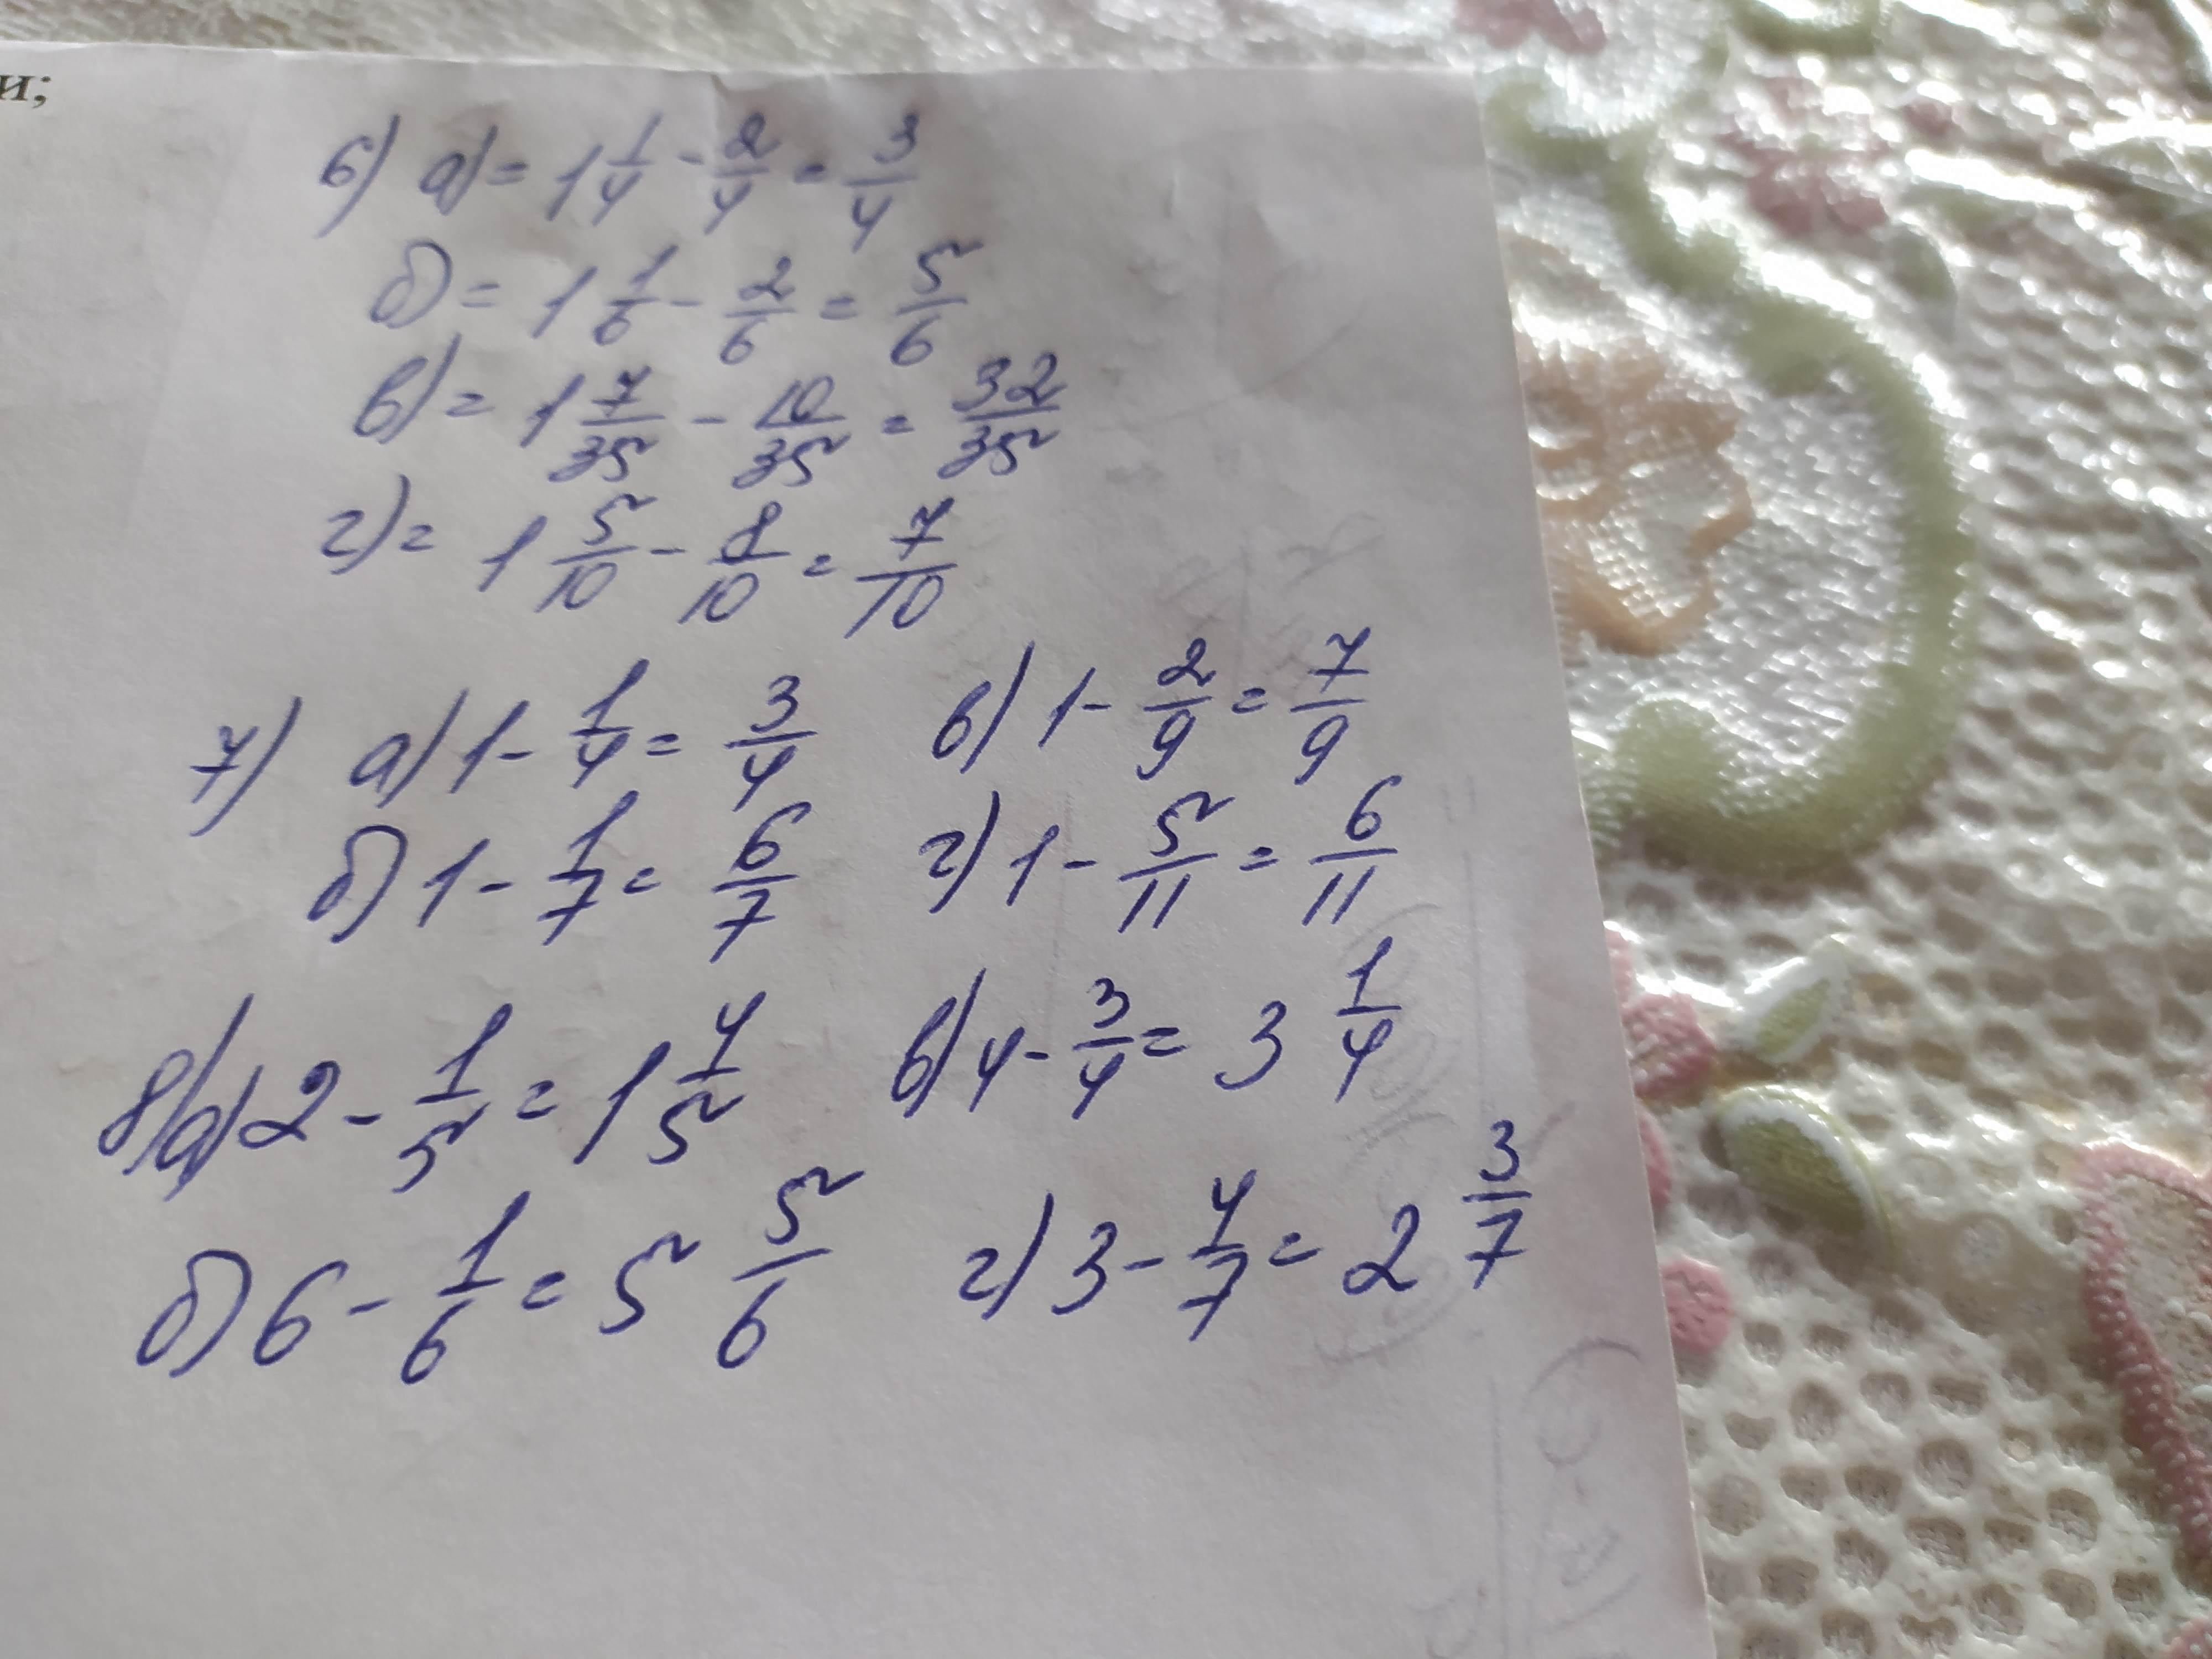 и;
6) а) = 1 1/4 - 2/4 = 3/4
б) = 1 1/6 - 2/6 = 5/6
в) = 1 7/35 - 10/35 = 32/35
г) = 1 5/10 - 8/10 = 7/10
7) а) 1 - 1/4 = 3/4 в) 1 - 2/9 = 7/9
б) 1 - 1/7 = 6/7 г) 1 - 5/11 = 6/11
8) а) 2 - 1/5 = 1 4/5 в) 4 - 3/4 = 3 1/4
б) 6 - 1/6 = 5 5/6 г) 3 - 4/7 = 2 3/7